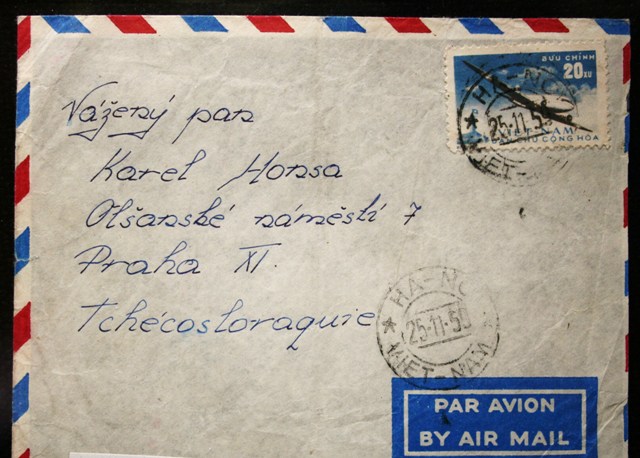 BƯU CHÍNH
20 XU
HÀ-NỘI
25-11-59
VIỆT-NAM
DÂN CHỦ CỘNG HÒA
VIET-
Vážený pan
Karel Honsa
Olšanské náměstí 7
Praha XI.
Tchécoslovaquie
HÀ-NỘI
25-11-59
VIET-NAM
PAR AVION
BY AIR MAIL